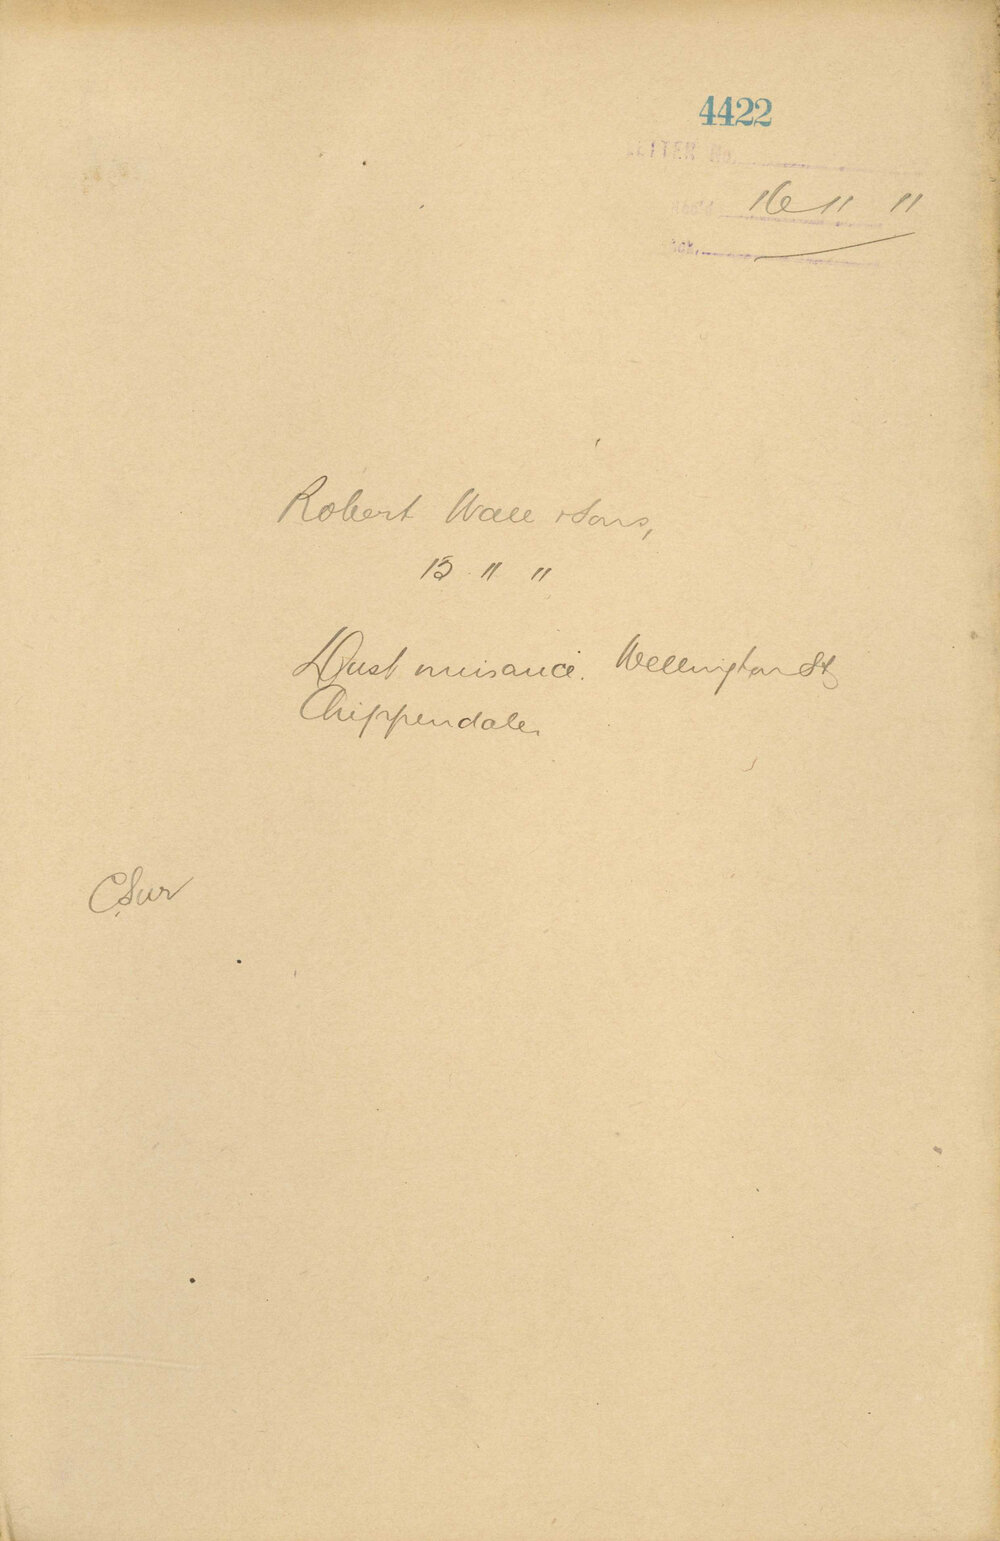 4422
LETTER No.
Rec'd 16 11 11
Ack.
Robert Wall & Sons,
13 " "
Dust nuisance. Wellington St
Chippendale.
C Sur